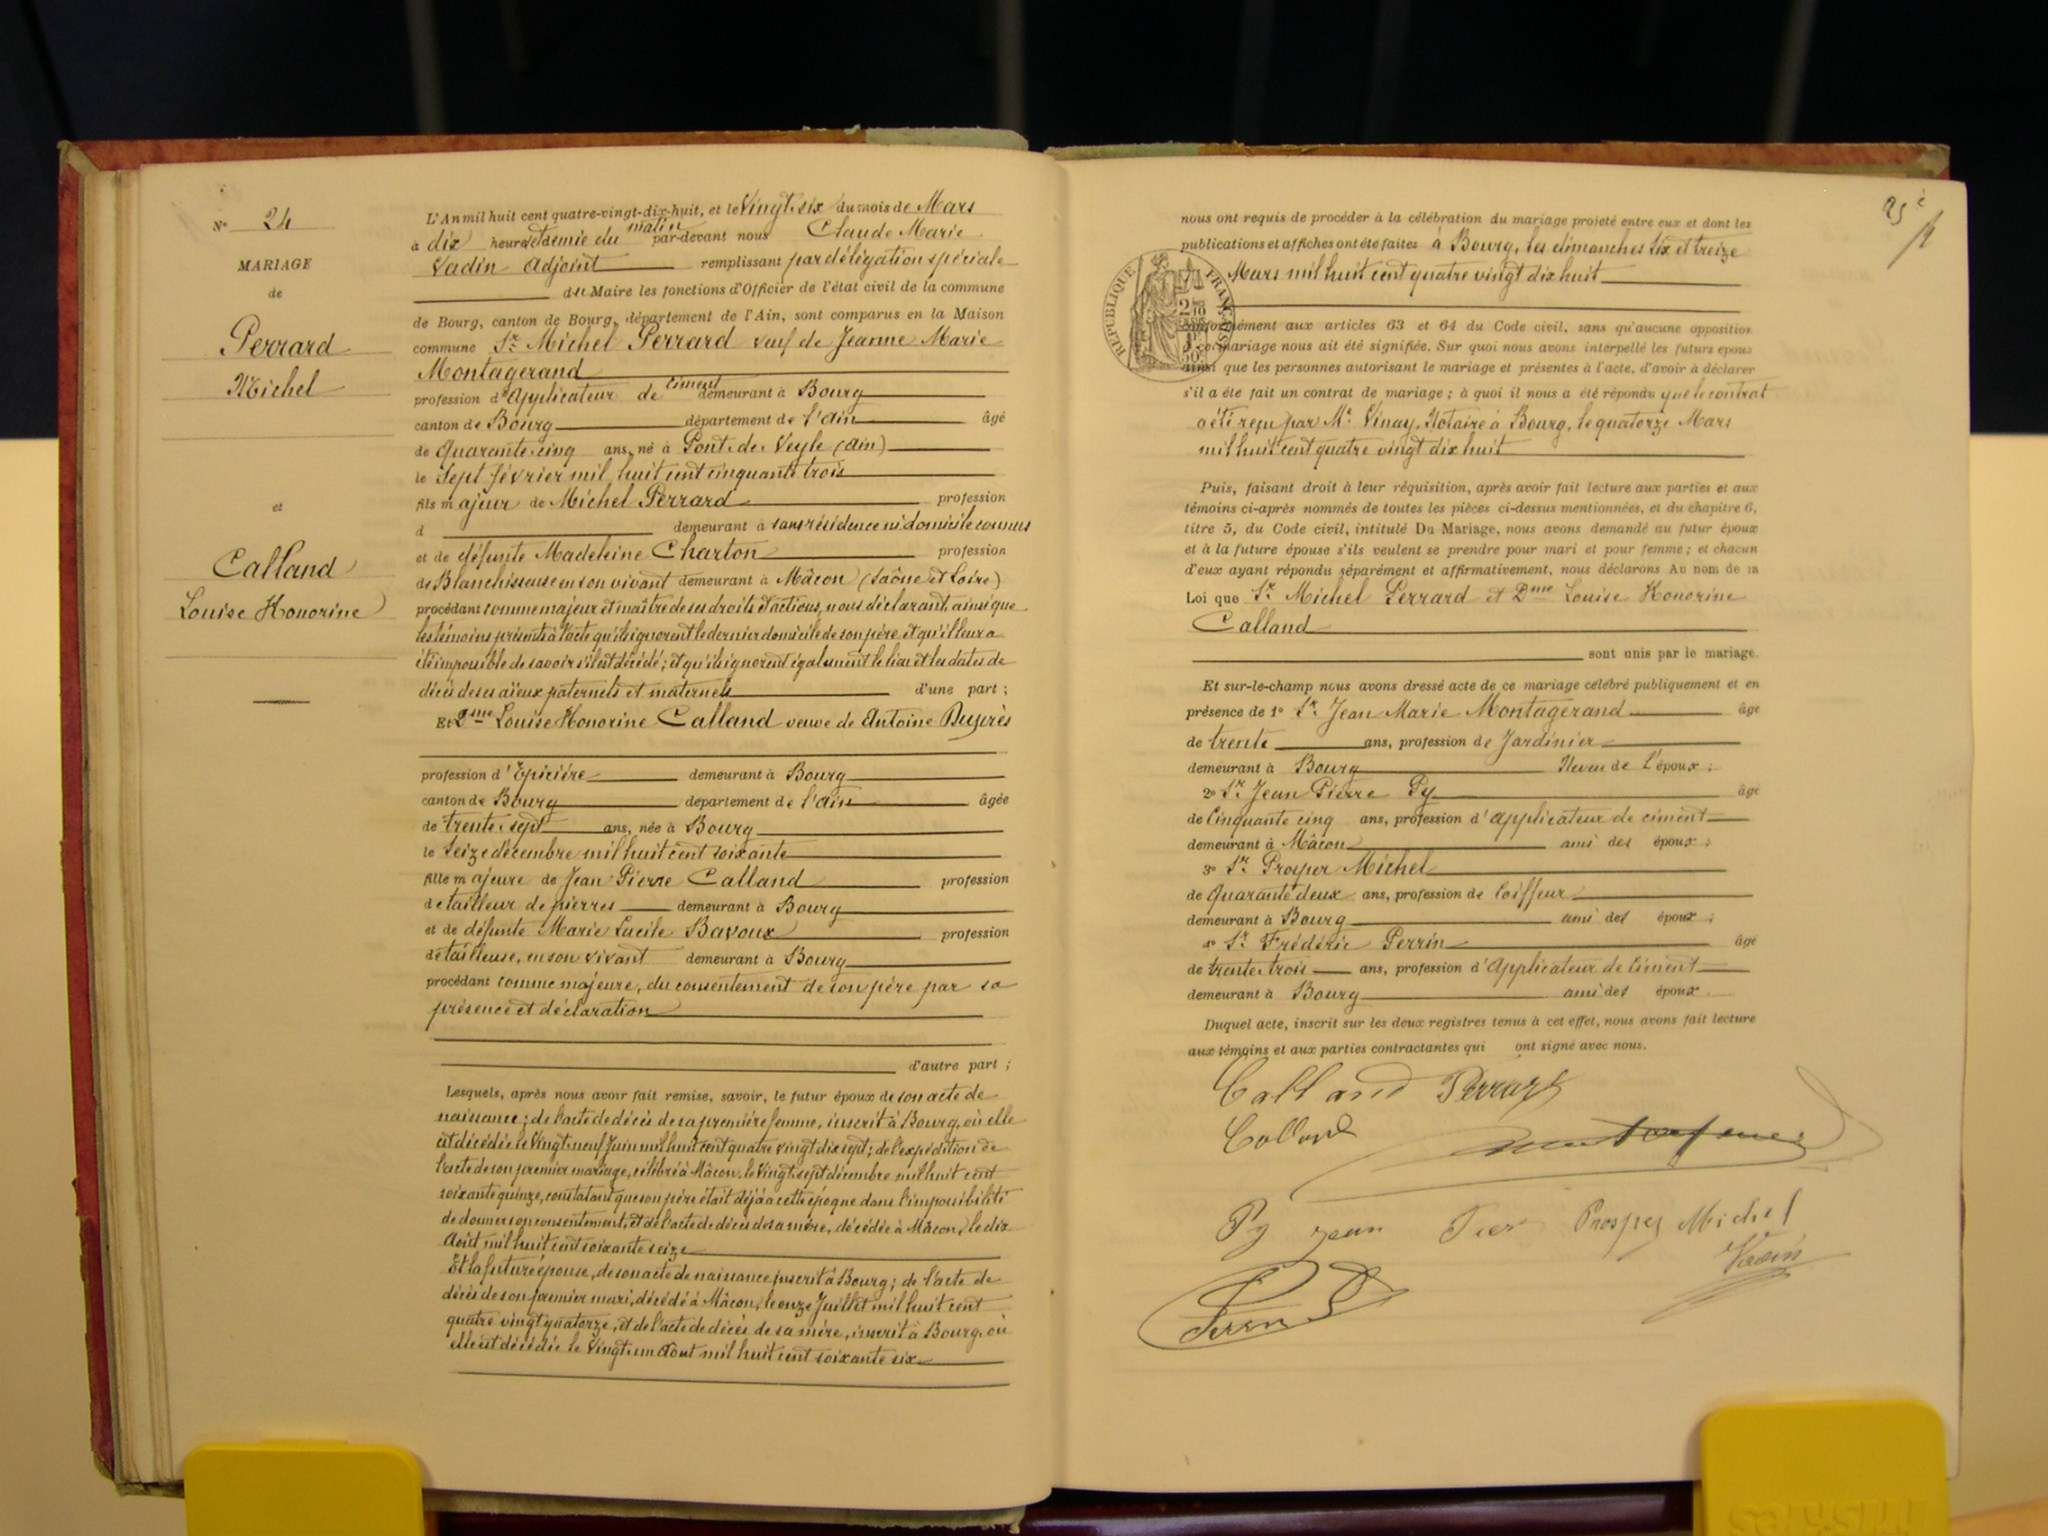 N° 24
MARIAGE
de
Perrard
Michel
et
Calland
Louise Honorine
L'An mil huit cent quatre-vingt-dix-huit, et le Vingt-six du mois de Mars
à dix heures et demie du matin par-devant nous Claude Marie
Vadin Adjoint remplissant par délégation spéciale
du Maire les fonctions d'Officier de l'état civil de la commune
de Bourg, canton de Bourg, département de l'Ain, sont comparus en la Maison
commune Sr Michel Perrard veuf de Jeanne Marie
Montagerand
profession d'applicateur de ciment demeurant à Bourg
canton de Bourg département de l'ain âgé
de quarante cinq ans, né à Pont-de-Veyle (ain)
le Sept février mil huit cent cinquante trois
fils majeur de Michel Perrard profession
d demeurant à sans résidence ni domicile connus
et de défunte Madeleine Charton profession
de Blanchisseuse en son vivant demeurant à Mâcon (Saône et Loire)
procédant comme majeur et maître de ses droits et actions, nous déclarant, ainsi que
les témoins présents à l'acte qu'ils ignorent le dernier domicile de son père et qu'il leur a
été impossible de savoir s'il est décédé ; et qu'ils ignorent également le lieu et les dates de
décès de ses aïeux paternels et maternels d'une part ;
Et Dme Louise Honorine Calland veuve de Antoine Duprès
profession d'Epicière demeurant à Bourg
canton de Bourg département de l'ain âgée
de trente-sept ans, née à Bourg
le Seize décembre mil huit cent soixante
fille majeure de Jean Pierre Calland profession
de tailleur de pierres demeurant à Bourg
et de défunte Marie Lucile Bavoux profession
de tailleuse, en son vivant demeurant à Bourg
procédant comme majeure, du consentement de son père par sa
présence et déclaration
d'autre part ;
Lesquels, après nous avoir fait remise, savoir, le futur époux de son acte de
naissance ; de l'acte de décès de sa première femme, inscrit à Bourg, où elle
est décédée le Vingt-neuf Juin mil huit cent quatre vingt dix sept ; de l'expédition de
l'acte de son premier mariage, célébré à Mâcon, le Vingt-sept décembre mil huit cent
soixante quinze, constatant que son père était déjà à cette époque dans l'impossibilité
de donner son consentement, et de l'acte de décès de sa mère, décédée à Mâcon, le dix
Août mil huit cent soixante seize
Et la future épouse, de son acte de naissance inscrit à Bourg ; de l'acte de
décès de son premier mari, décédé à Mâcon, le onze Juillet mil huit cent
quatre vingt quatorze, et de l'acte de décès de sa mère, inscrit à Bourg, où
elle est décédée le Vingt-un Août mil huit cent soixante six
25e
nous ont requis de procéder à la célébration du mariage projeté entre eux et dont les
publications et affiches ont été faites à Bourg, les dimanches six et treize
Mars mil huit cent quatre vingt dix huit
RÉPUBLIQUE FRANÇAISE
conformément aux articles 63 et 64 du Code civil, sans qu'aucune opposition
ce mariage nous ait été signifiée. Sur quoi nous avons interpellé les futurs époux
ainsi que les personnes autorisant le mariage et présentes à l'acte, d'avoir à déclarer
s'il a été fait un contrat de mariage ; à quoi il nous a été répondu que le contrat
a été reçu par Me Vinay, Notaire à Bourg, le quatorze Mars
mil huit cent quatre vingt dix huit
Puis, faisant droit à leur réquisition, après avoir fait lecture aux parties et aux
témoins ci-après nommés de toutes les pièces ci-dessus mentionnées, et du chapitre 6,
titre 5, du Code civil, intitulé Du Mariage, nous avons demandé au futur époux
et à la future épouse s'ils veulent se prendre pour mari et pour femme ; et chacun
d'eux ayant répondu séparément et affirmativement, nous déclarons Au nom de la
Loi que Sr Michel Perrard et Dme Louise Honorine
Calland
sont unis par le mariage.
Et sur-le-champ nous avons dressé acte de ce mariage célébré publiquement et en
présence de 1° Sr Jean Marie Montagerand âgé
de trente ans, profession de Jardinier
demeurant à Bourg Neveu de l'époux ;
2° Sr Jean Pierre Py âgé
de Cinquante cinq ans, profession d'applicateur de ciment
demeurant à Mâcon ami des époux ;
3° Sr Prosper Michel
de quarante deux ans, profession de Coiffeur
demeurant à Bourg ami des époux ;
4° Sr Frédéric Perrin âgé
de trente-trois ans, profession d'applicateur de Ciment
demeurant à Bourg ami des époux
Duquel acte, inscrit sur les deux registres tenus à cet effet, nous avons fait lecture
aux témoins et aux parties contractantes qui ont signé avec nous.
Calland Perrard
Calland
Py jean Prosper Michel
Vadin
Perrin